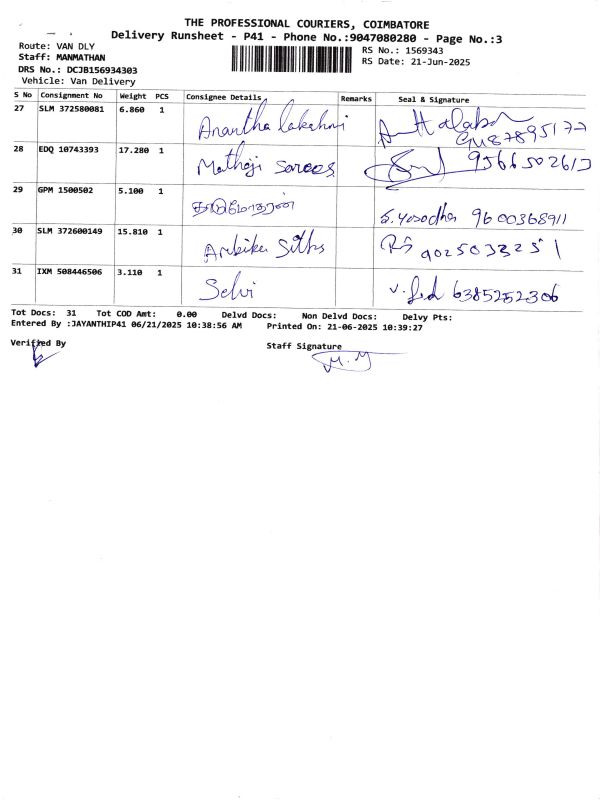 THE PROFESSIONAL COURIERS, COIMBATORE
Delivery Runsheet - P41 - Phone No.:9047080280 - Page No.:3
Route: VAN DLY
RS No.: 1569343
Staff: MANMATHAN
RS Date: 21-Jun-2025
DRS No.: DCJB156934303
Vehicle: Van Delivery
S No Consignment No Weight PCS Consignee Details Remarks Seal & Signature
27 SLM 372580081 6.860 1 Anantha lakshmi
28 EDQ 10743393 17.280 1 Mathaji 9566502613
29 GPM 1500502 5.100 1 S. Yasodha 9600368911
30 SLM 372600149 15.810 1 Ambika Silks RS 9025033251
31 IXM 508446506 3.110 1 Selvi 6385252306
Tot Docs: 31 Tot COD Amt: 0.00 Delvd Docs: Non Delvd Docs: Delvy Pts:
Entered By :JAYANTHIP41 06/21/2025 10:38:56 AM Printed On: 21-06-2025 10:39:27
Verified By Staff Signature
M. M